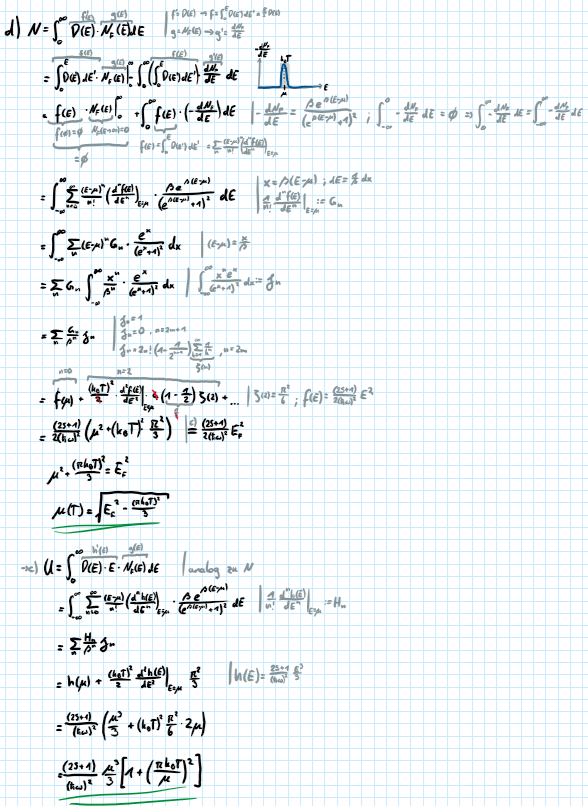 d) N = ∫₀^∞ D(E)·N_F(E) dE | f'=D(E) → f=∫₀^E D(E')dE' g=N_F(E) → g'=dN_F/dE
= ∫₀^E D(E)dE'·N_F(E)|₀^∞ - ∫₀^∞(∫₀^E D(E')dE')·dN_F/dE dE
= f(E)·N_F(E)|₀^∞ + ∫₀^∞ f(E)·(-dN_F/dE) dE | -dN_F/dE = βe^{β(E-μ)}/(e^{β(E-μ)}+1)² ; ∫_{-∞}^0 -dN_F/dE dE = 0 ⇒ ∫₀^∞ -dN_F/dE dE = ∫_{-∞}^∞ -dN_F/dE dE
f(0)=0 N_F(E→∞)=0 f(E)=∫₀^E D(E')dE' = Σ (E-μ)^n/n! (d^n f(E)/dE^n)|_{E=μ}
=0
= ∫_{-∞}^∞ Σ_{n=0}^∞ (E-μ)^n/n! (d^n f(E)/dE^n)_{E=μ} · βe^{β(E-μ)}/(e^{β(E-μ)}+1)² dE | x=β(E-μ) ; dE=1/β dx
1/n! d^n f(E)/dE^n|_{E=μ} := G_n
= ∫_{-∞}^∞ Σ_n (E-μ)^n G_n · e^x/(e^x+1)² dx | (E-μ)=x/β
= Σ_n G_n ∫_{-∞}^∞ x^n/β^n · e^x/(e^x+1)² dx | ∫_{-∞}^∞ x^n e^x/(e^x+1)² dx := J_n
= Σ_n G_n/β^n J_n | J_0=1
J_n=0 , n=2m+1
n=0 n=2
= f(μ) + (k_0T)²/2 · d²f(E)/dE²|_{E=μ} · 4(1-1/2) ζ(2) + ... | ζ(2)=π²/6 ; f(E)=(2S+1)/2(ħω)² E²
= (2S+1)/2(ħω)² (μ²+(k_0T)²·π²/3) | c) = (2S+1)/2(ħω)² E_F²
μ² + (πk_0T)²/3 = E_F²
μ(T) = √(E_F² - (πk_0T)²/3)
U = ∫₀^∞ D(E)·E·N_F(E) dE | analog zu N
= ∫_{-∞}^∞ Σ_{n=0}^∞ (E-μ)^n/n! (d^n h(E)/dE^n)_{E=μ} · βe^{β(E-μ)}/(e^{β(E-μ)}+1)² dE | 1/n! d^n h(E)/dE^n|_{E=μ} := H_n
= Σ_n H_n/β^n J_n
= h(μ) + (k_0T)²/2 d²h(E)/dE²|_{E=μ} π²/3 | h(E)=(2S+1)/(ħω)² E³/3
= (2S+1)/(ħω)² (μ³/3 + (k_0T)² π²/6 · 2μ)
= (2S+1)/(ħω)² μ³/3 [1+(πk_0T/μ)²]